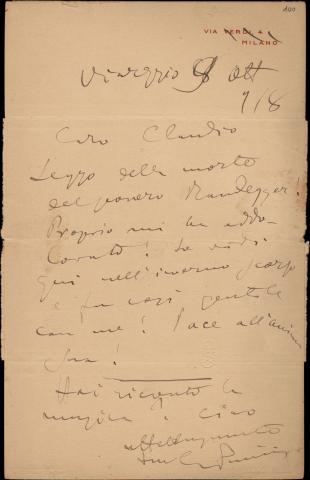 100
VIA VERDI 4
MILANO
Viareggio 8 ott
918
Caro Claudio
Leggo della morte
del povero Randegger!
Proprio mi ha addo-
lorato! Lo vidi
qui nell'inverno scorso
e fu così gentile
con me! Pace all'anima
sua!
Hai ricevuto la
musica? Ciao
aff
tuo G Puccini